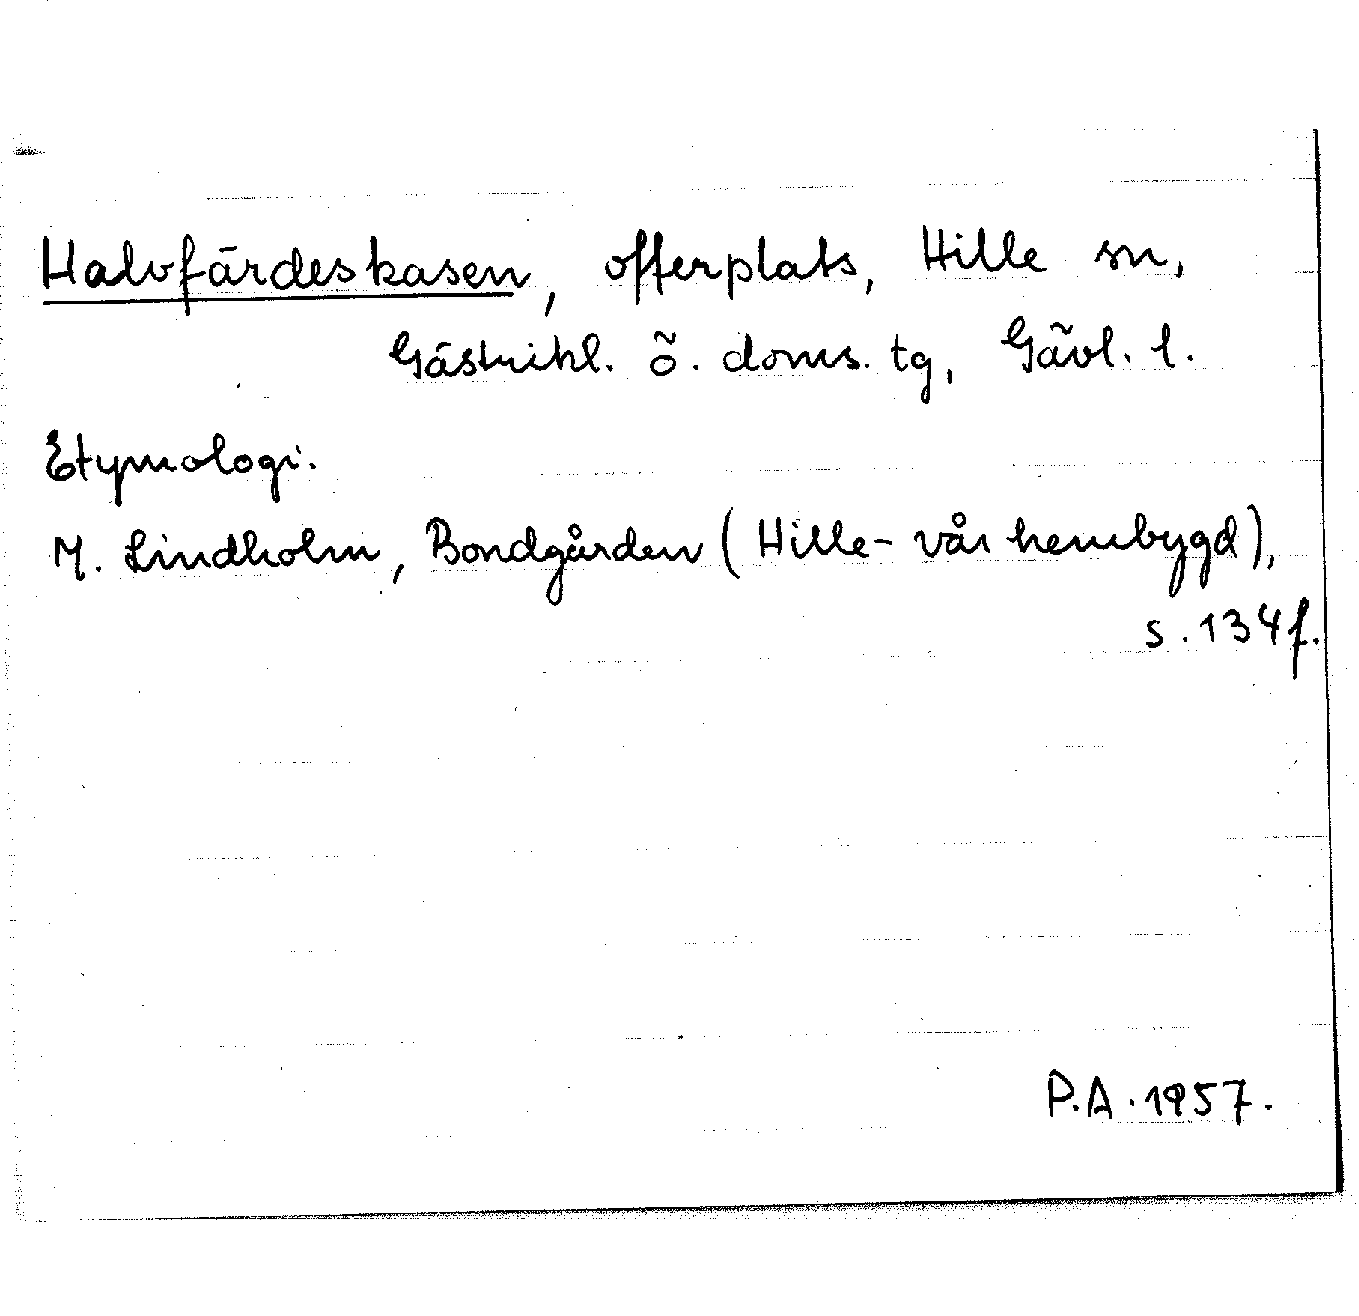 Halvfärdeskasen, offerplats, Hille sn,
Gästrikl. ö. doms. tg, Gävl. l.
Etymologi.
M. Lindholm, Bondgården (Hille - vår hembygd),
s. 134 f.
P.A. 1957.